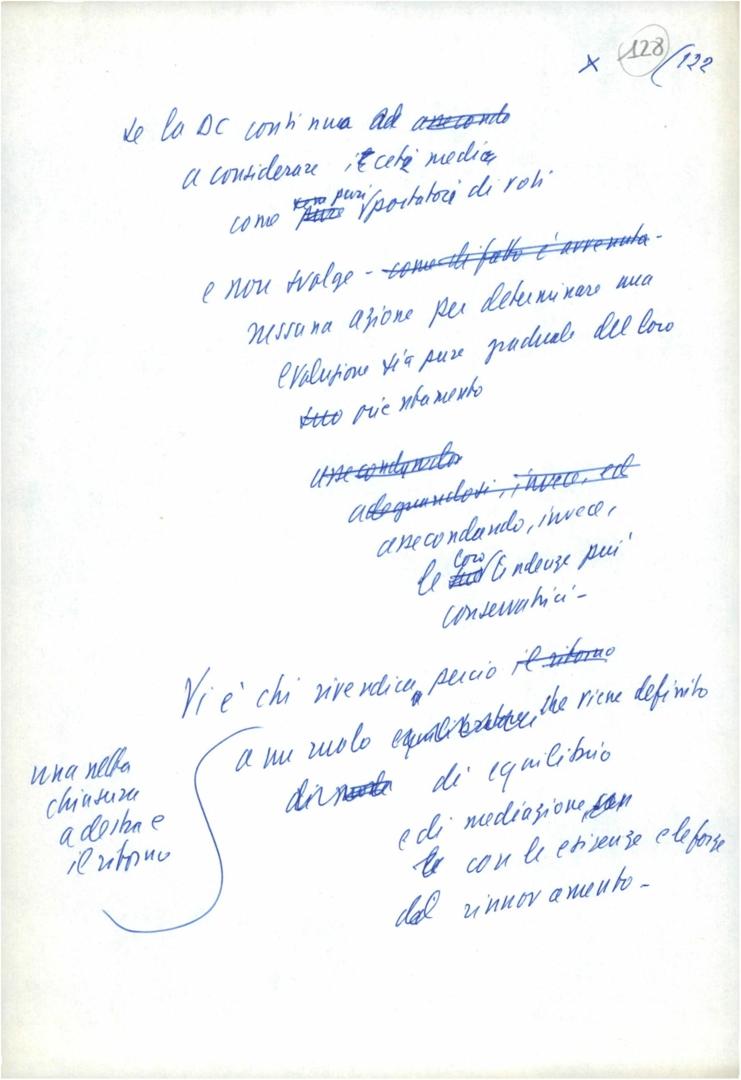 x 128 /122
se la DC continua ad assecondo
a considerare i ceti medi
come puri portatori di voti
e non svolge - come di fatto è avvenuta -
nessuna azione per determinare una
evoluzione sia pure graduale del loro
suo orientamento
assecondandos
adeguandosi, invece, ed
assecondando, invece,
le loro tendenze più
conservatrici -
Vi è chi rivendica, perciò il ritorno
una netta
chiusura
a destra e
il ritorno
a un ruolo che viene definito
di equilibrio
e di mediazione
con le esigenze e le forze
del rinnovamento -